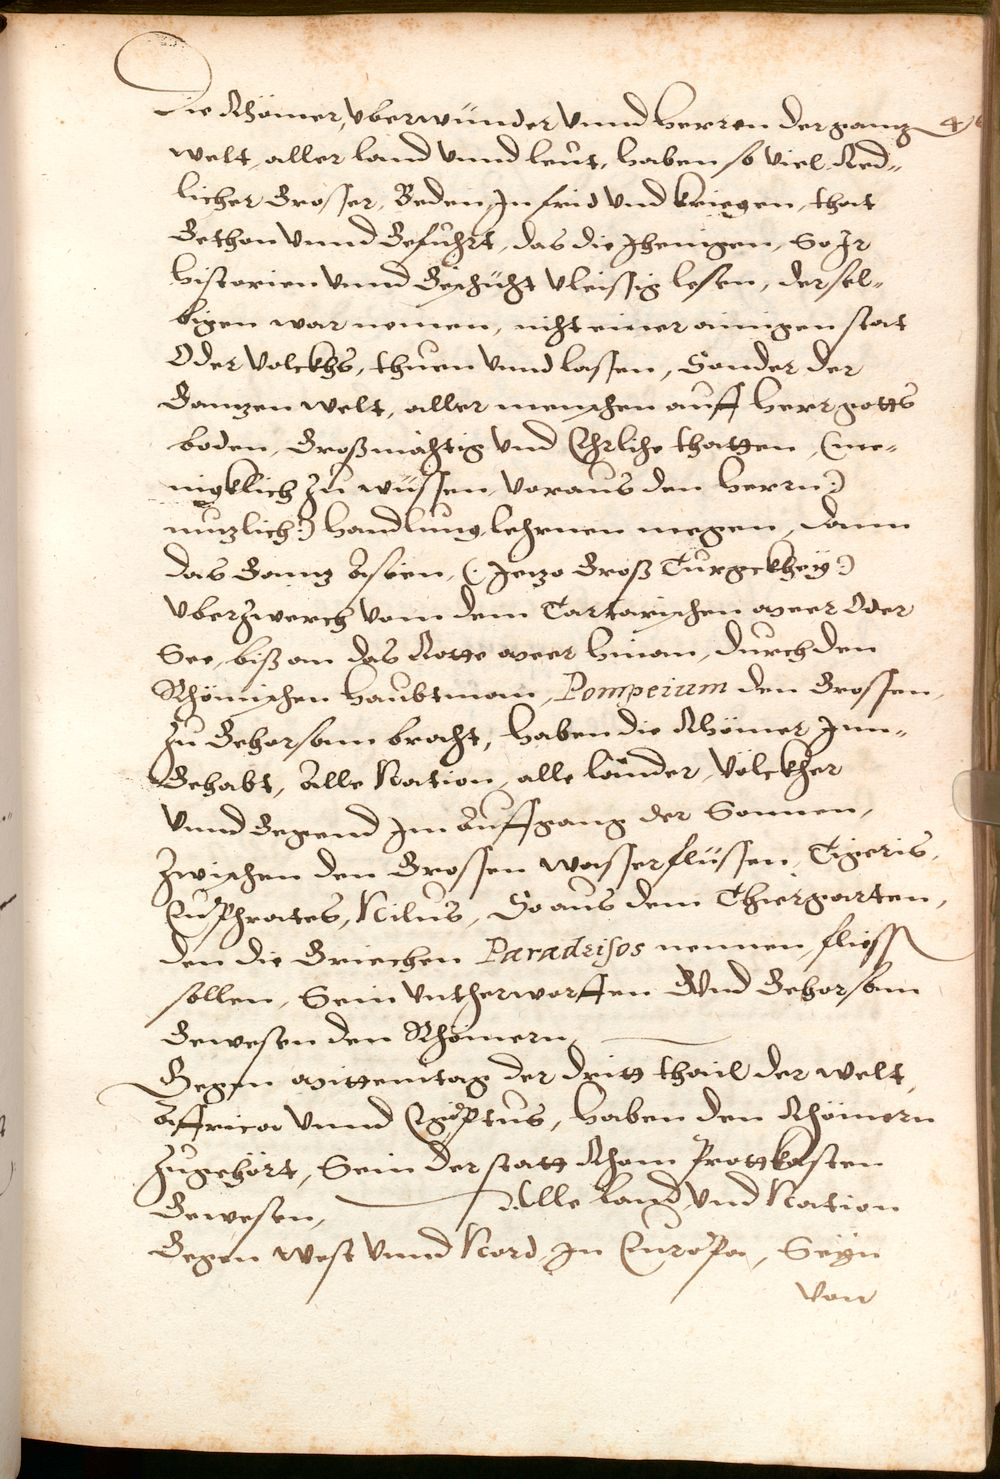 Die Rhömer, Vberwünder Vnnd herren der ganz 4
welt, aller land Vnnd leüt, haben so Viel Red=
licher Grosser, Reden, In frid Vnd kriegen, that
Gethon Vnnd Gefuhrt, das die Jhenigen, So Jr
historien Vnnd Gschücht Vleissig lesen, dersel=
bigen war nemen, nicht einer ainigen stat
Oder Volckhs, thuen Vnnd lassen, Sonder der
Ganzen welt, aller menschen auff herrgotts
boden, Großmächtig Vnd Ehrliche thatten, (me=
nigklich Zu wüssen, Voraus den herrn:)
nuzlich:) handlung, lehrnen megen, Dann
das Ganz Asien, (: Jezo Groß Türgckhey:)
Vberzwerch Von dem Tartarischen meer Oder
See, biß an das Rotte meer hinan, durch den
Rhömischen haubtman, Pompeium den Grossen,
Zu Gehorsam bracht, haben die Rhömer Inn=
Gehabt, Alle Nation, alle länder, Völckher
Vnnd Gegend Im Auffgang der Sonnen,
Zwischen den Grossen wasserflüssen, Tigeris,
Euphrates, Nilus, So aus dem Thiergarten,
den die Griechen Paradeisos nennen, fliessen
sollen, Sein Vntherworffen Vnd Gehorsam
Gewesen den Rhömern
Gegen mittemtag der dritt thail der welt,
Affrica Vnnd Egiptus, haben den Rhömern
Zugehört, Sein der statt Rhom Prottkasten
Gewesen, Alle Land Vnd Nation
Gegen West Vnnd Nord, In Europa, Seyn
Von